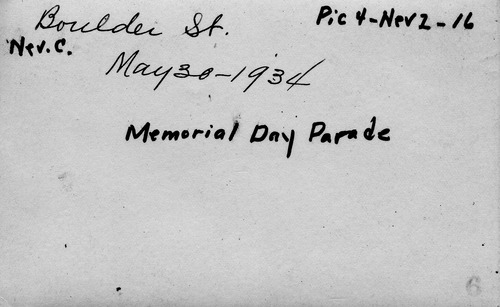 Boulder St.
Pic 4-Nev2-16
Nev. C.
May 30-1934
Memorial Day Parade
6